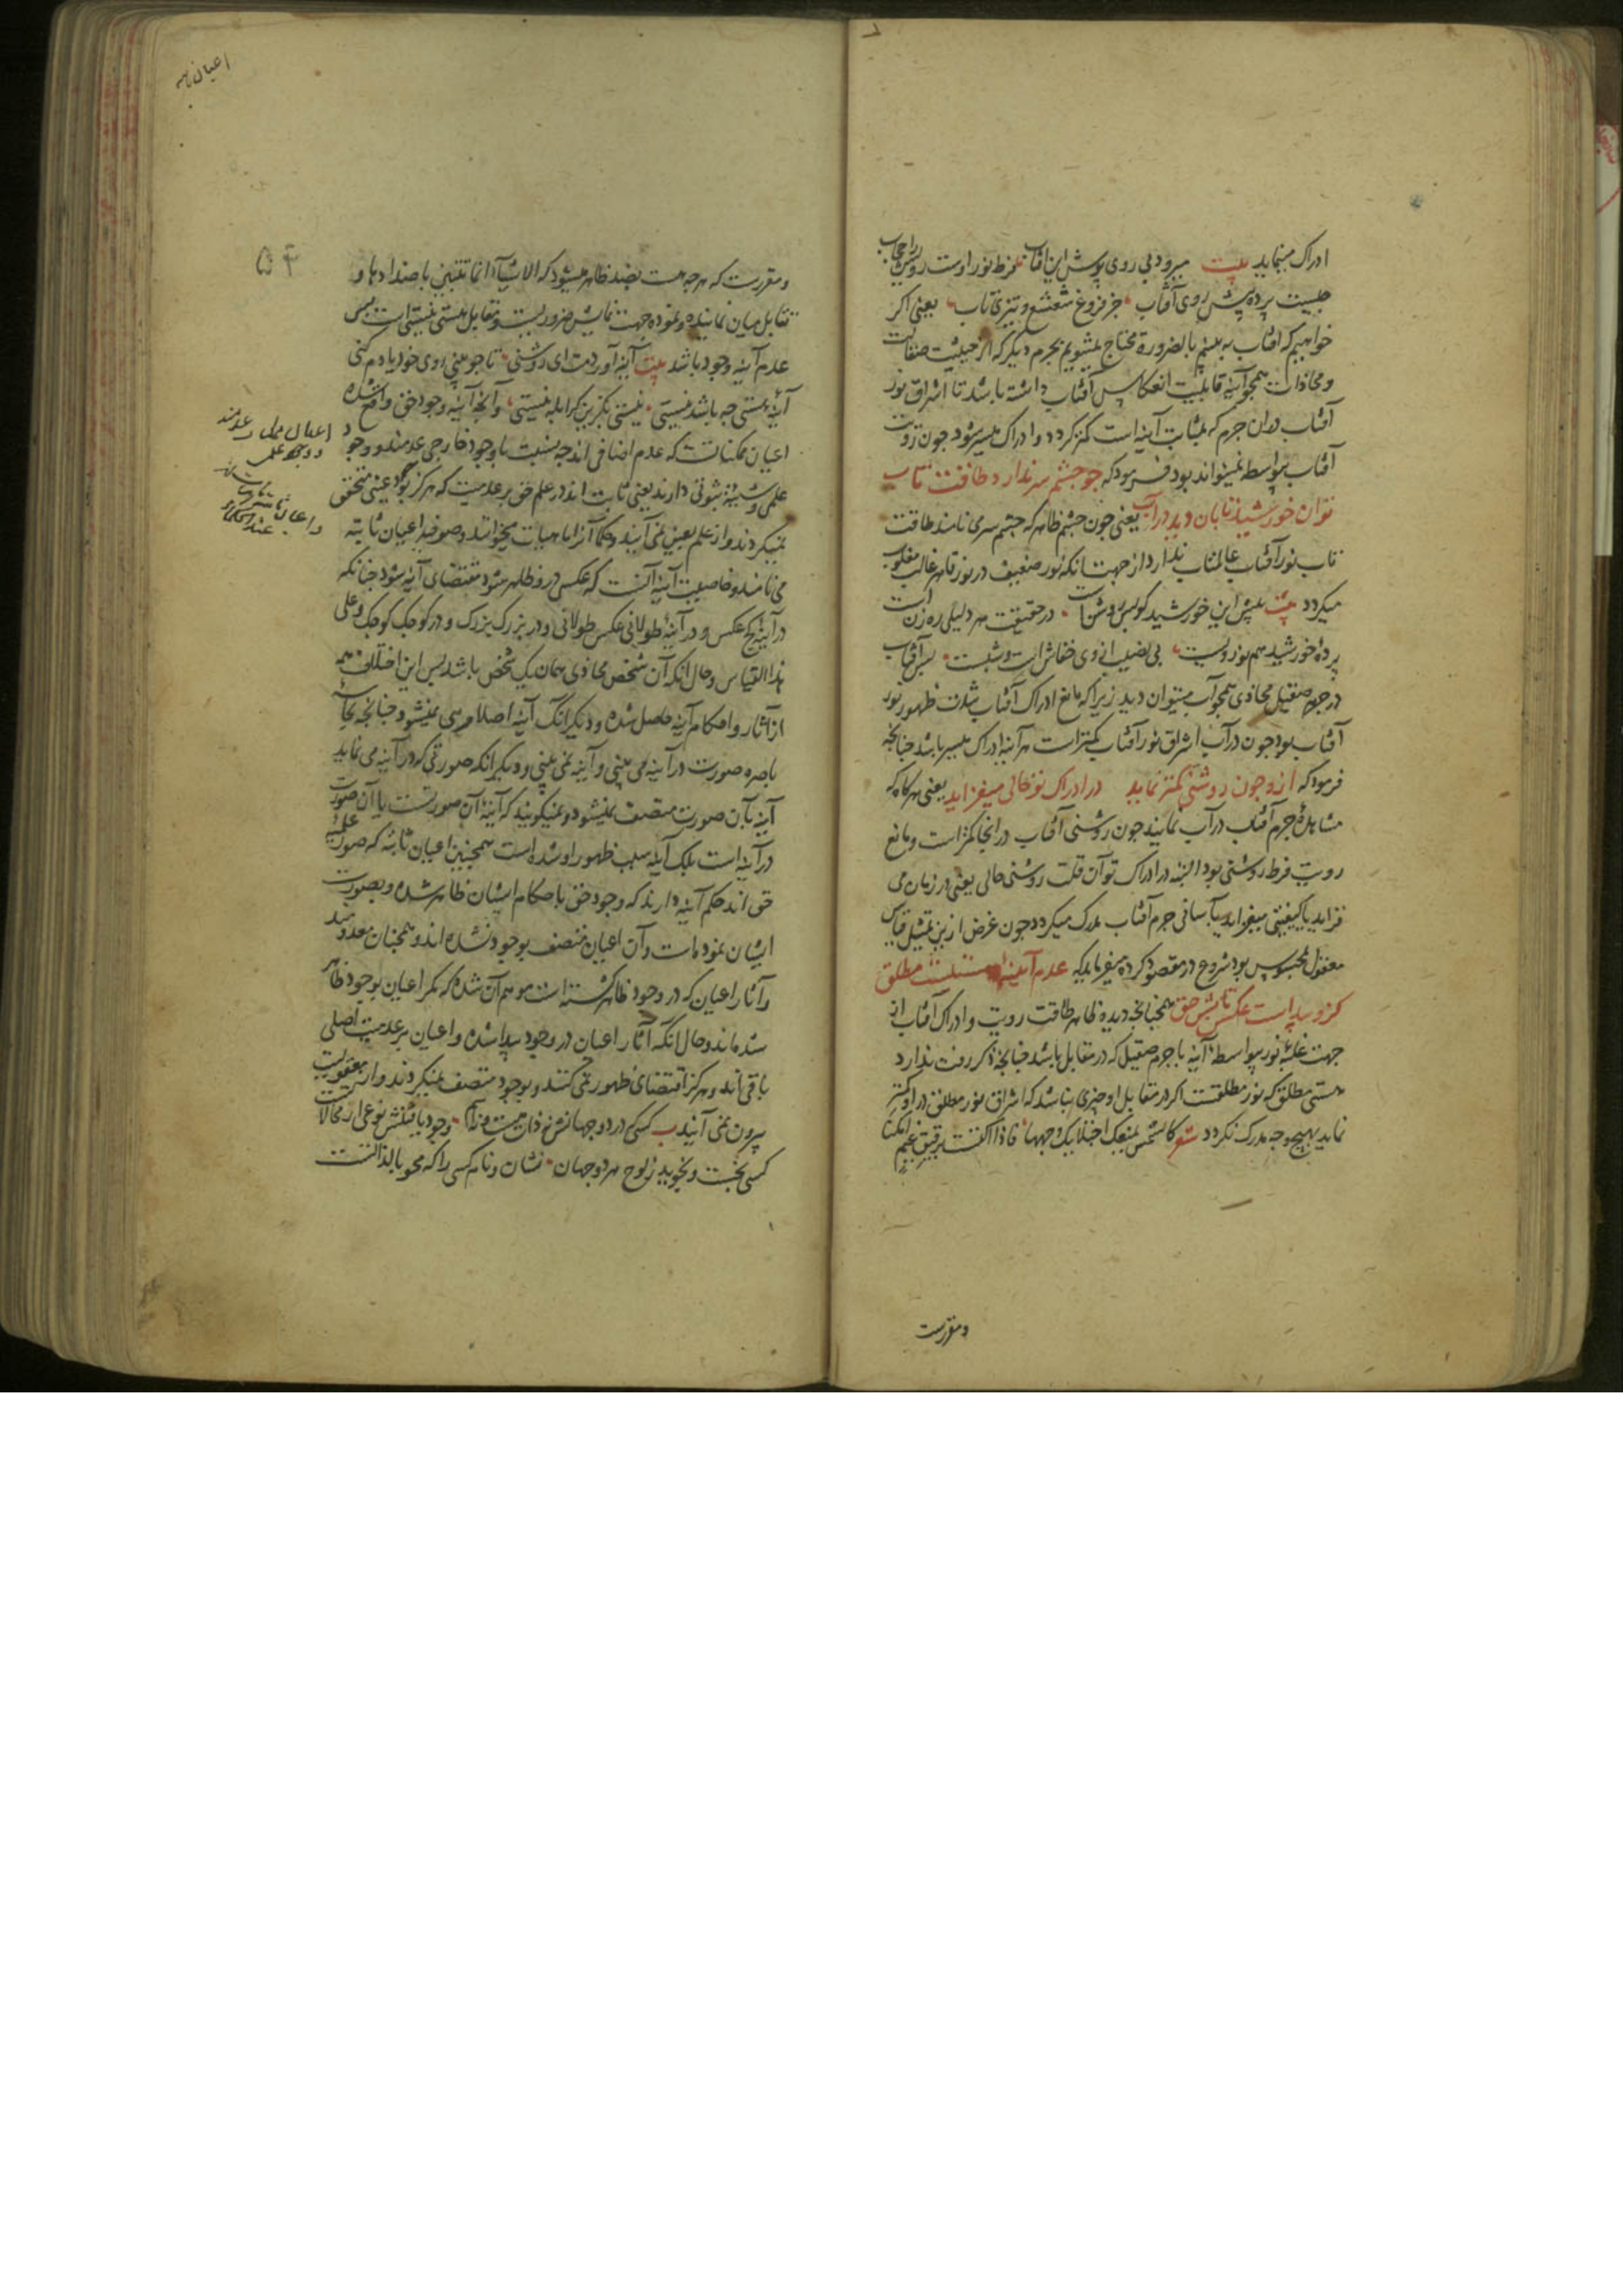 ادراک مینماید بیت میرود بی روی پوش این آفتاب فرط نور اوست رویش را حجاب
چیست پرده پیش روی آفتاب جز فروغ شعشع و تیزی تاب یعنی اکر
خواهیم که آفتاب به بینیم بالضروره محتاج میشویم بجرم دیکر که از حیثیت صقالت
و محاذات همچو آینه قابلیت انعکاس آفتاب داشته باشد تا اشراق نور
آفتاب دران جرم که بمثابت آینه است کمتر کردد و ادراک میسر شود چون رویت
آفتاب بیواسطه نمیتواند بود فرمود که چو چشم سر ندارد طاقت تاب
توان خورشید تابان دید در آب یعنی چون چشم ظاهر که چشم سر می نامند طاقت
تاب نور آفتاب عالمتاب ندارد از جهت انکه نور ضعیف در نور قاهر غالب مغلوب
میکردد بیت پیش این خورشید کو بس روشن است در حقیقت هر دلیلی ره زن است
پرده خورشید هم نور ویست بی نصیب از وی خفاش است و شبست پس آفتاب
در جرم صقیل محاذی همچو آب میتوان دید زیرا که مانع ادراک آفتاب شدت ظهور نور
آفتاب بود چون در آب اشراق نور آفتاب کمتر است هر آینه ادراک میسر باشد چنانچه
فرمود که ازو چون روشنی کمتر نماید در ادراک تو حالی میفزاید یعنی هر کاه که
مشاهده جرم آفتاب در آب نمایند چون روشنی آفتاب در انجا کمتر است و مانع
رویت فرط روشنی بود البته در ادراک تو آن قلت روشنی حالی یعنی در زمان می
فزاید یا کیفیتی میفزاید بآسانی جرم آفتاب مدرک میکردد چون غرض ازین تمثیل قیاس
معقول بمحسوس بود شروع در مقصود کرده میفرماید که عدم آیینه هستیست مطلق
کزو پیداست عکس تابش حق همچنانچه دیده ظاهر طاقت رویت و ادراک آفتاب از
جهت غلبه نور بیواسطه آینه یا جرم صقیل که در مقابل باشد چنانچه ذکر رفت ندارد
هستی مطلق که نور مطلقست اکر در مقابل او چیزی نباشد که اشراق نور مطلق در او کمتر
نماید بهیچ وجه مدرک نکردد شعر کالشمس یمنعک اجتلاءک وجهها فاذا اکتست برقیق غیم امکنا
ومقررست
اعیان ثابته
۵۴
و مقررست که هرچه هست بضد ظاهر میشود که الاشیاء انما تتبین باضدادها و
تقابل میان نماینده و نموده جهت نمایش ضروریست و مقابل هستی نیستی است پس
عدم آینه وجود باشد بیت آینه آوردمت ای روشنی تا چو بینی روی خود یادم کنی
آینه هستی چه باشد نیستی نیستی بگزین کر ابله نیستی و آنچه آینه وجود حق واقع شده
اعیان ممکناتست که عدم اضافی اند چه بنسبت با وجود خارجی عدمند و وجود
علمی و شیئیت ثبوتی دارند یعنی ثابت اند در علم حق بر عدمیت که هرکز بوجود عینی متحقق
نمیکردند و از علم بعین نمی آیند و حکما آنرا ماهیات میخوانند و صوفیه اعیان ثابته
می نامند و خاصیت آینه آنست که عکس درو ظاهر شود بمقتضای آینه شود چنانکه
در آینه کج عکس و در آینه طولانی عکس طولانی و در بزرک بزرک و در کوچک کوچک و علی
هذا القیاس و حال آنکه آن شخص محاذی همان یک شخص باشد پس این اختلاف همه
از آثار و احکام آینه حاصل شده و دیگر آنکه آینه اصلا مرئی نمیشود چنانچه بحاسه
باصره صورت در آینه می بینی و آینه نمی بینی و دیکر انکه صورتی که در آینه می نماید
آینه بآن صورت متصف نمیشود و نمیکویند که آینه آن صورتست یا آن صورت
در آینه است بلکه آینه سبب ظهور او شده است همچنین اعیان ثابته که صور علمیه
حق اند حکم آینه دارند که وجود حق باحکام ایشان ظاهر شده و بصورت
ایشان نموده است و آن اعیان متصف بوجود نشده اند و همچنان معدومند
و آثار اعیان که در وجود ظاهر کشته است موهم آن شده که مکر اعیان بوجود ظاهر
شده اند و حال انکه آثار اعیان در وجود پیدا شده و اعیان بر عدمیت اصلی
باقی اند و هرکز اقتضای ظهور نمی کنند و بوجود متصف نمیکردند و از معقولیت
بیرون نمی آیند کسی در دو جهانش نه ذات هست و نه نام وجود یافتنش نوعی از محالاتست
کسی نجست و نجوید ز لوح هر دو جهان نشان و نام کسی را که محو بالذاتست
و اعیان ثابته